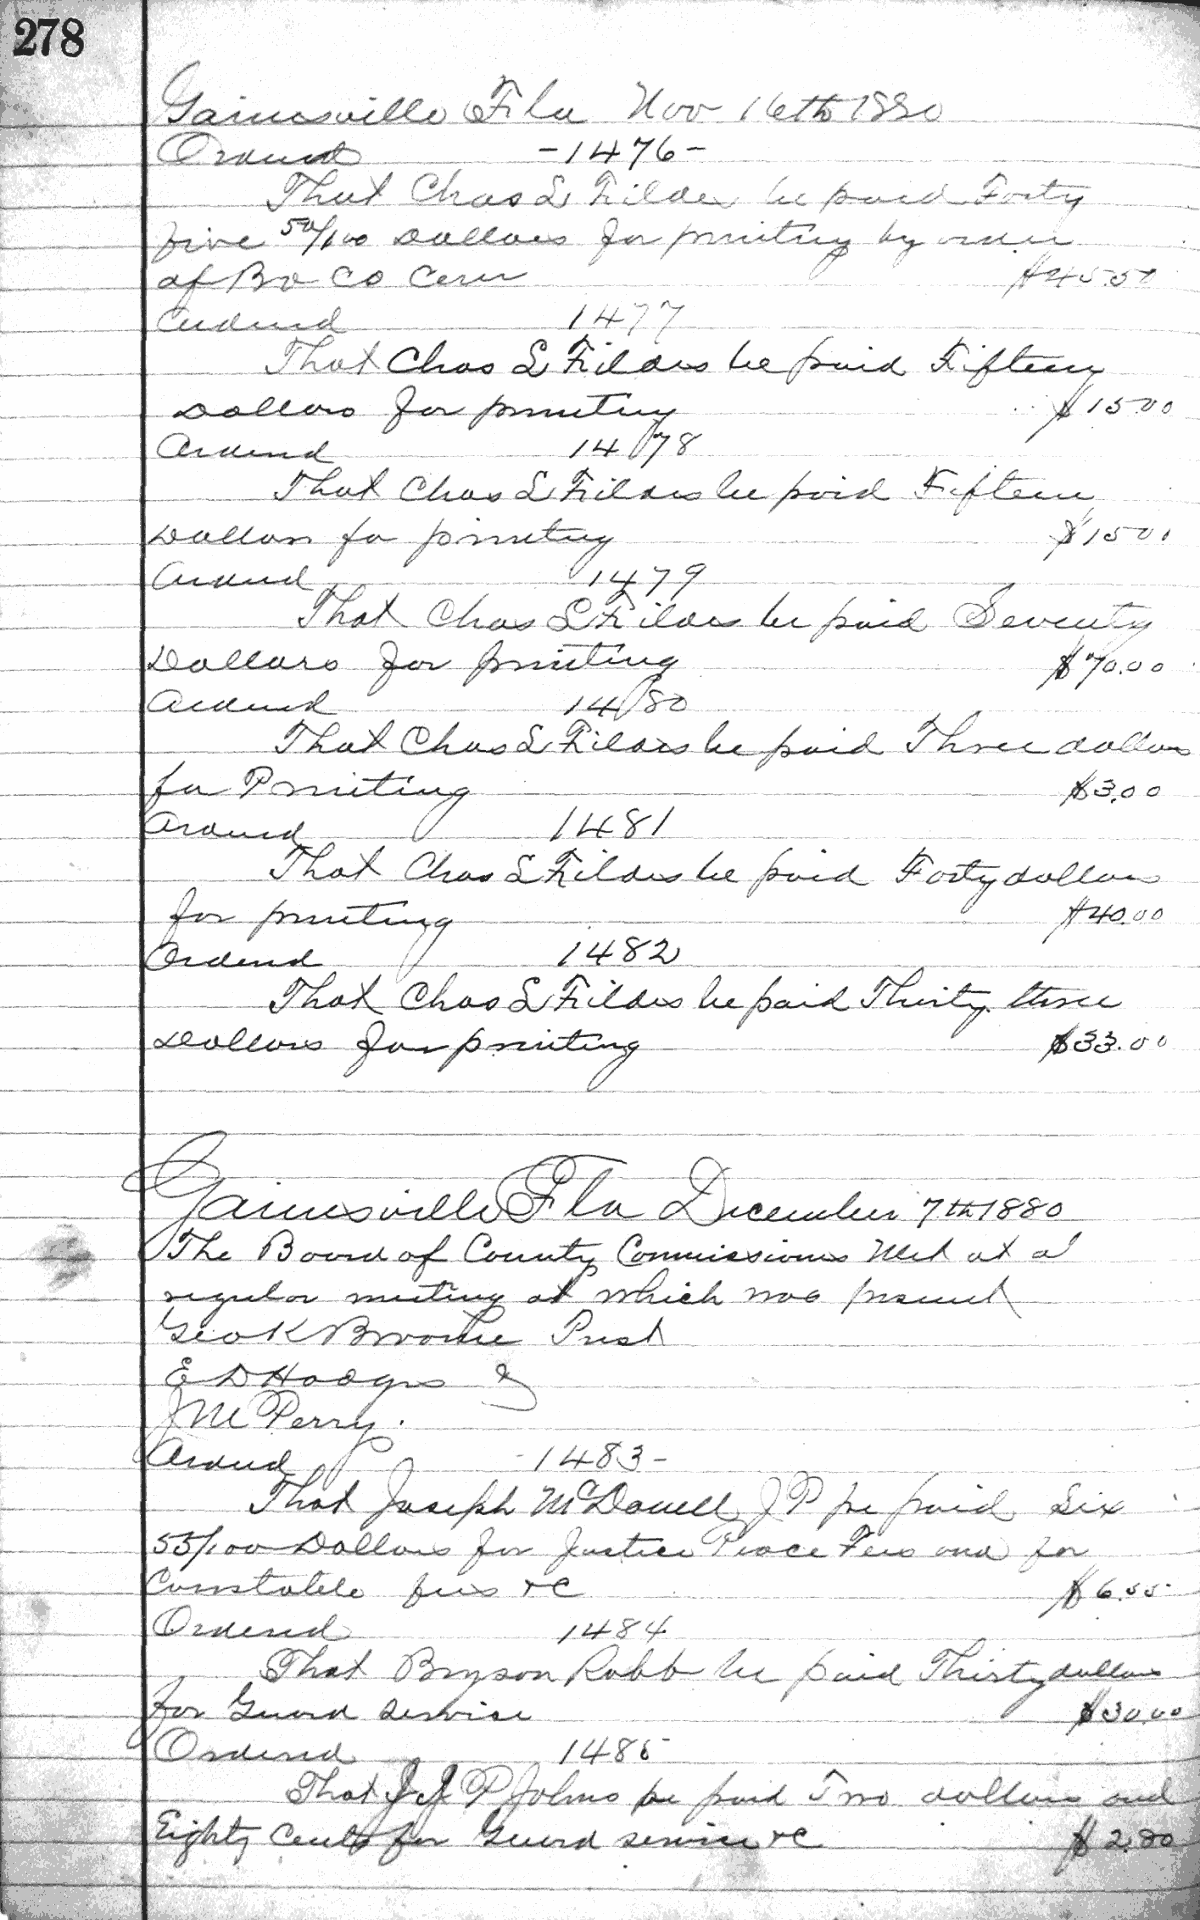 278
Gainesville Fla Nov 16th 1880
Ordered -1476-
That Chas L Fildes be paid Forty
five 50/100 Dollars for printing by order
of Bd Co Com $45.50
Ordered 1477
That Chas L Fildes be paid Fifteen
Dollars for printing $15.00
Ordered 1478
That Chas L Fildes be paid Fifteen
Dollars for printing $15.00
Ordered 1479
That Chas L Fildes be paid Seventy
Dollars for printing $70.00
Ordered 1480
That Chas L Fildes be paid Three dollars
for Printing $3.00
Ordered 1481
That Chas L Fildes be paid Forty dollars
for printing $40.00
Ordered 1482
That Chas L Fildes be paid Thirty three
Dollars for printing $33.00
Gainesville Fla December 7th 1880
The Board of County Commissioners Met at a
regular meeting at which was present
Geo K Broome Prest
E D Hodges &
J M Perry.
Ordered -1483-
That Joseph McDowell J P be paid Six
55/100 Dollars for Justice Peace Fees and for
Constable fees &C $6.55
Ordered 1484
That Bryson Robb be paid Thirty dollars
for Guard service $30.00
Ordered 1485
That J J P Johns be paid Two dollars and
Eighty Cents for Guard service &C $2.80